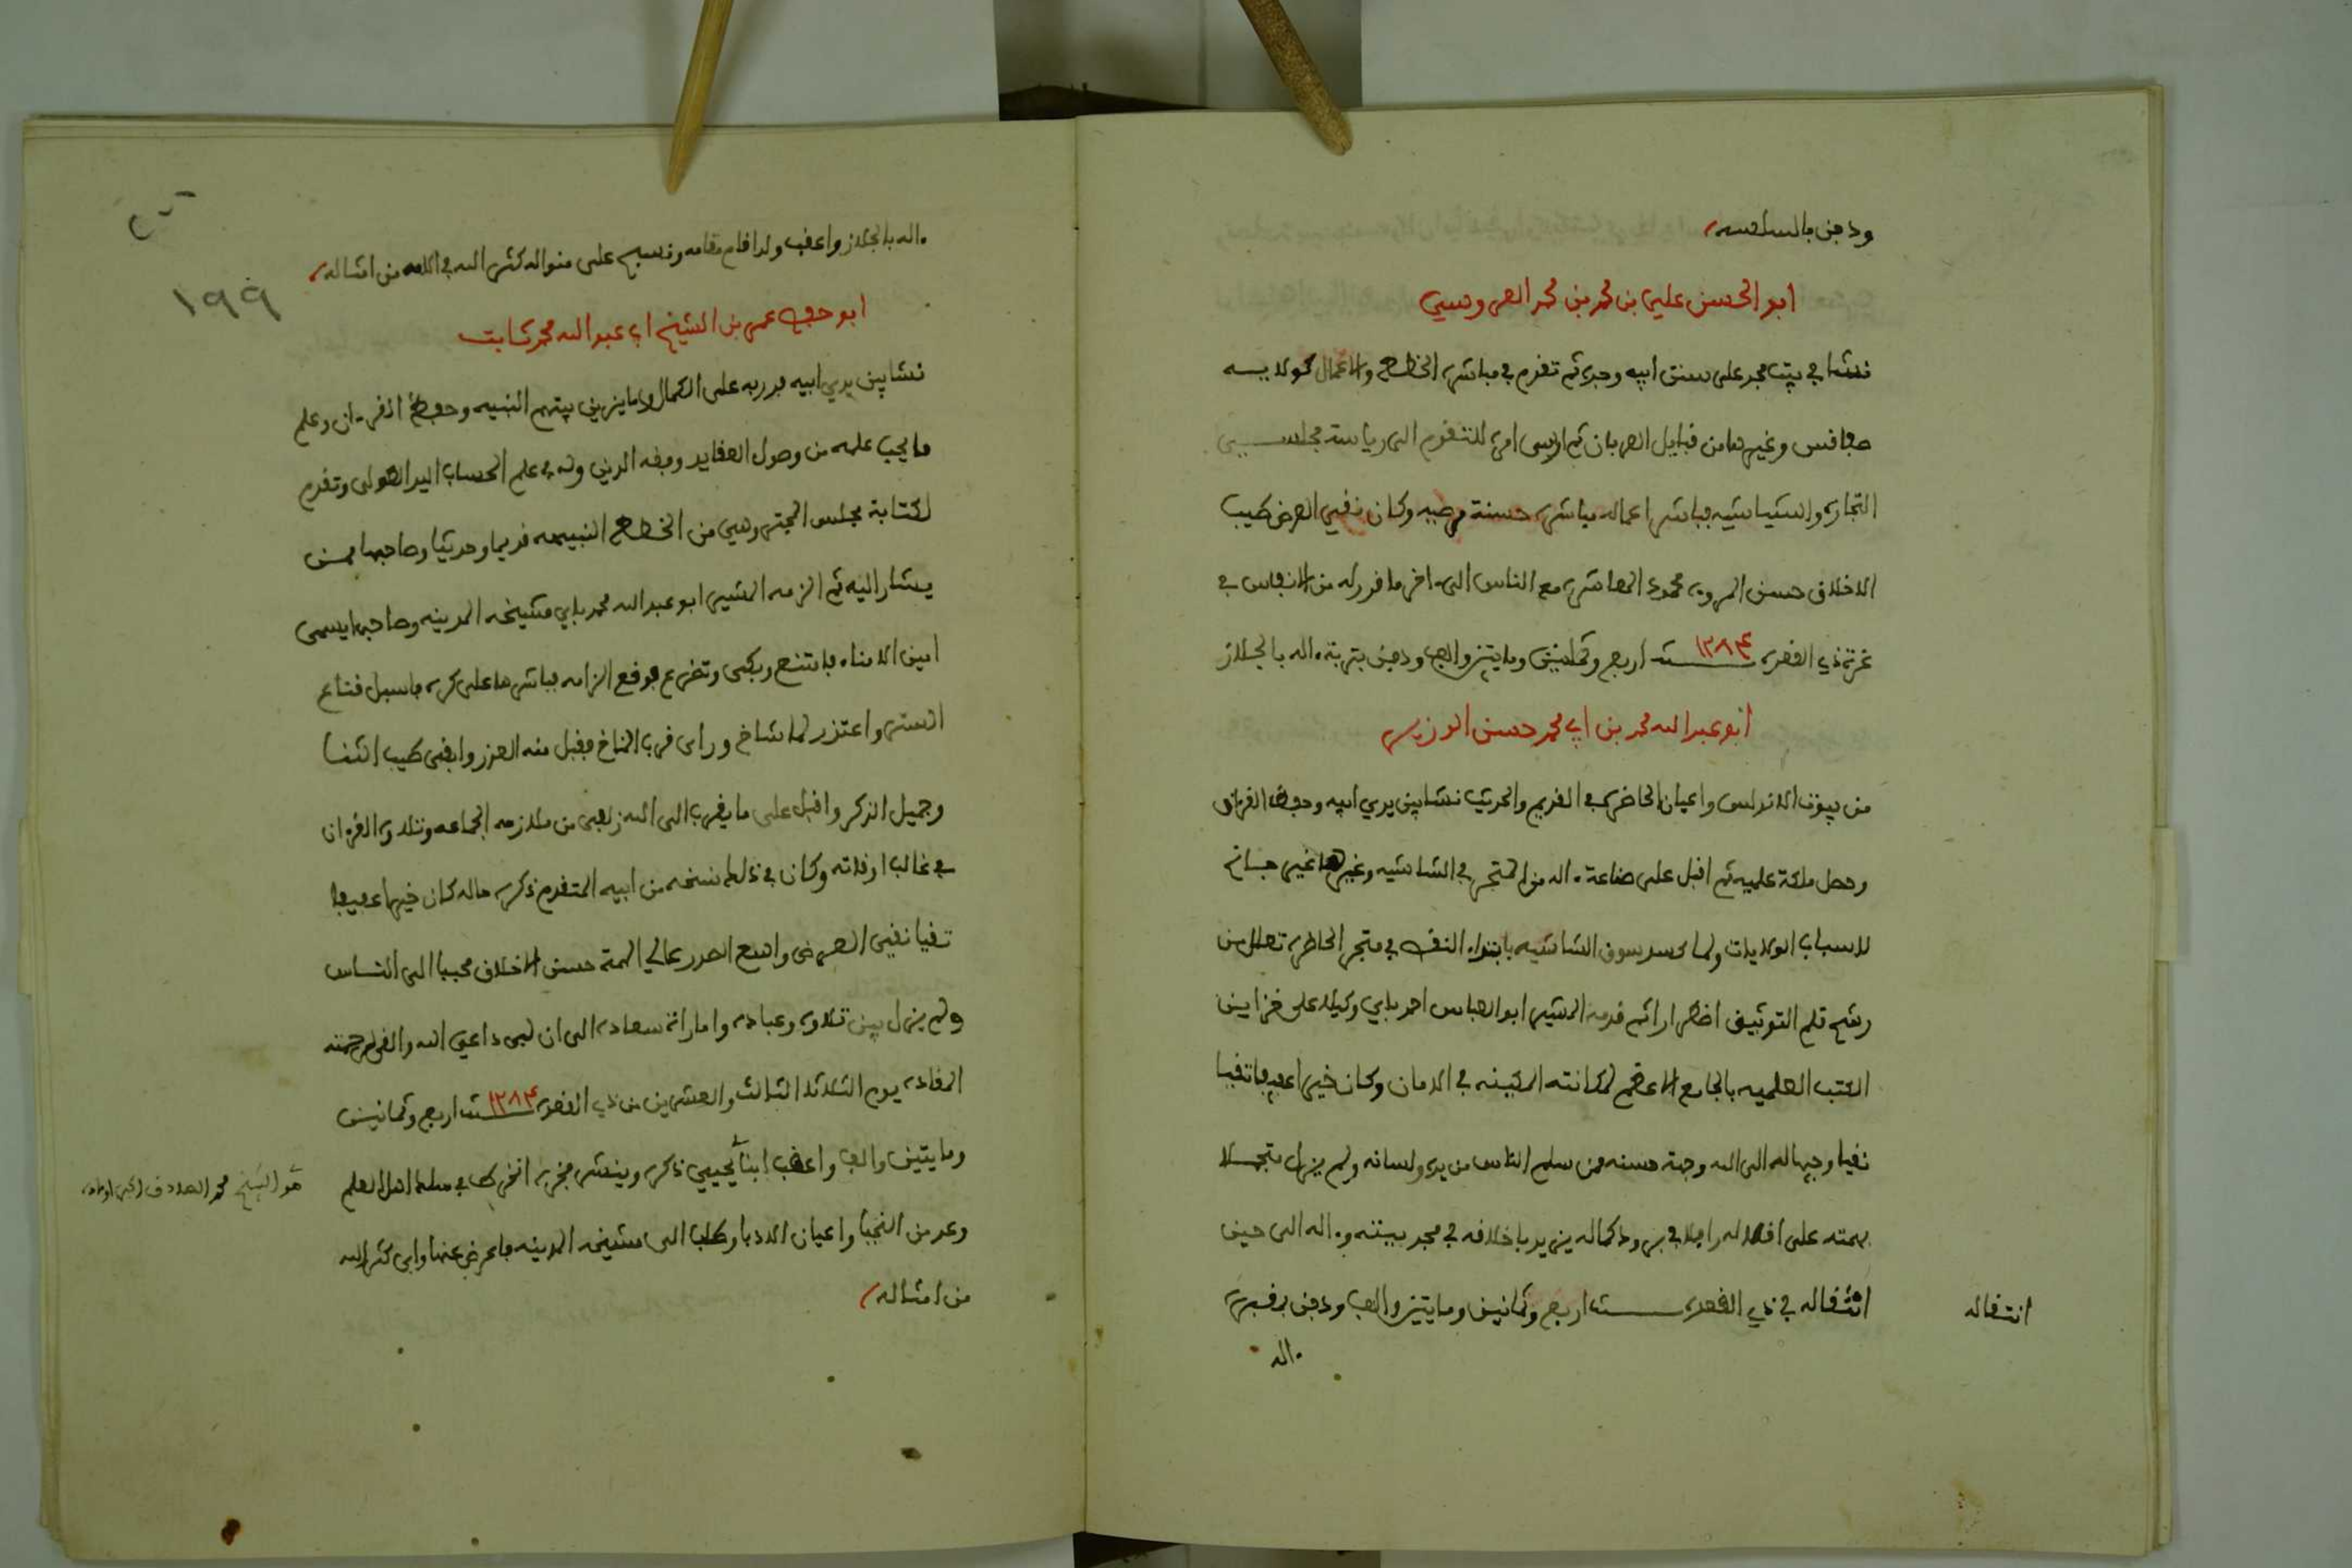 ودفن بالسلسلة
ابو الحسن علي بن محمد بن محمد العروسي
نشا في بيت مجد على سنن ابيه وجده ثم تقدم في مباشرة الخطط والاعمال كولاية
صفاقس وغيرها من قبايل العربان ثم ارتقى امره للتقدم الى رياسة مجلسي
التجارة والشياشية فباشر اعماله مباشرة حسنة مرضية وكان نقي العرض طيب
الاخلاق حسن المروءة محمود المعاشرة مع الناس الى ءاخر ما قدر له من الانفاس في
غرة ذي القعدة ١٢٨٤ سنة اربع وثمانين ومايتين والف ودفن بتربة ءاله بالجلاز
ابو عبد الله محمد بن ابي محمد حسن الوزير
من بيوت الاندلس واعيان الحاضرة في القديم والحديث نشا بين يدي ابيه وحفظ القرءان
وحصل ملكة علمية ثم اقبل على صناعة ءاله من المتجر في الشاشية وغيرها غير
لاسباب الولايات ولما كسد سوق الشاشية بابتداء النقص في متجر الحاضرة
رشح قلم التوثيق اضطرارا ثم قدمه المشير ابو العباس احمد باي وكيلا على خزاين
الكتب العلمية بالجامع الاعظم لمكانته المكينة في الامان وكان خيرا عفيفا تقيا
نقيا وجيها له الى الله وجهة حسنة ممن سلم الناس من يده ولسانه ولم يزل متجملا
بهمته على اقلاله رافلا في برود كماله يزيد باخلاقه في مجد بيته وءاله الى حين
انتقاله في ذي القعدة سنة اربع وثمانين ومايتين والف ودفن بمقبرة
انتقاله
ءاله
ءاله بالجلاز واعقب ولدا قام مقامه ونسج على منواله كثر الله في الامة من امثاله
ابو حفص عمر بن الشيخ ابي عبد الله محمد ثابت
نشا بين يدي ابيه فدربه على الكمال وما يزين بيتهم النبيه وحفظ القرءان وعلم
ما يجب علمه من اصول العقايد وفقه الدين وله في علم الحساب اليد الطولى وتقدم
لكتابة مجلس الجبر وهي من الخطط النبيهة قديما وحديثا وصاحبها ممن
يشار اليه ثم الزمه المشير ابو عبد الله محمد باي مشيخة المدينة وصاحبها يسمى
امين الامناء فامتنع وبكى وتضرع فوقع الزامه فباشرها على كره فاسبل قناع
الستر واعتذر لما شاخ وراى قرب المناخ فقبل منه العذر وابقى طيب الثنا
وجميل الذكر واقبل على ما يقرب الى الله زلفى من ملازمة الجماعة وتلاوة القرءان
في غالب اوقاته وكان في ذلك نسخة من ابيه المتقدم ذكره حاله كان خيرا عفيفا
تقيا نقي العرض واسع الصدر عالي الهمة حسن الاخلاق محببا الى الناس
ولم يزل بين تلاوة وعبادة وامارات سعادة الى ان لبى داعي الله والقى لرحمته
المقادة يوم الثلاثا الثالث والعشرين من ذي القعدة ١٢٨٤ سنة اربع وثمانين
ومايتين والف واعقب ابنا يحيي ذكره وينشر فخره انخرط في سلك اهل العلم
هو الشيخ محمد الصادق اكبر اولاده
وعد من النجبا واعيان الادبا وطلب الى مشيخة المدينة فاعرض عنها وابى كثر الله
من امثاله
١٩٩